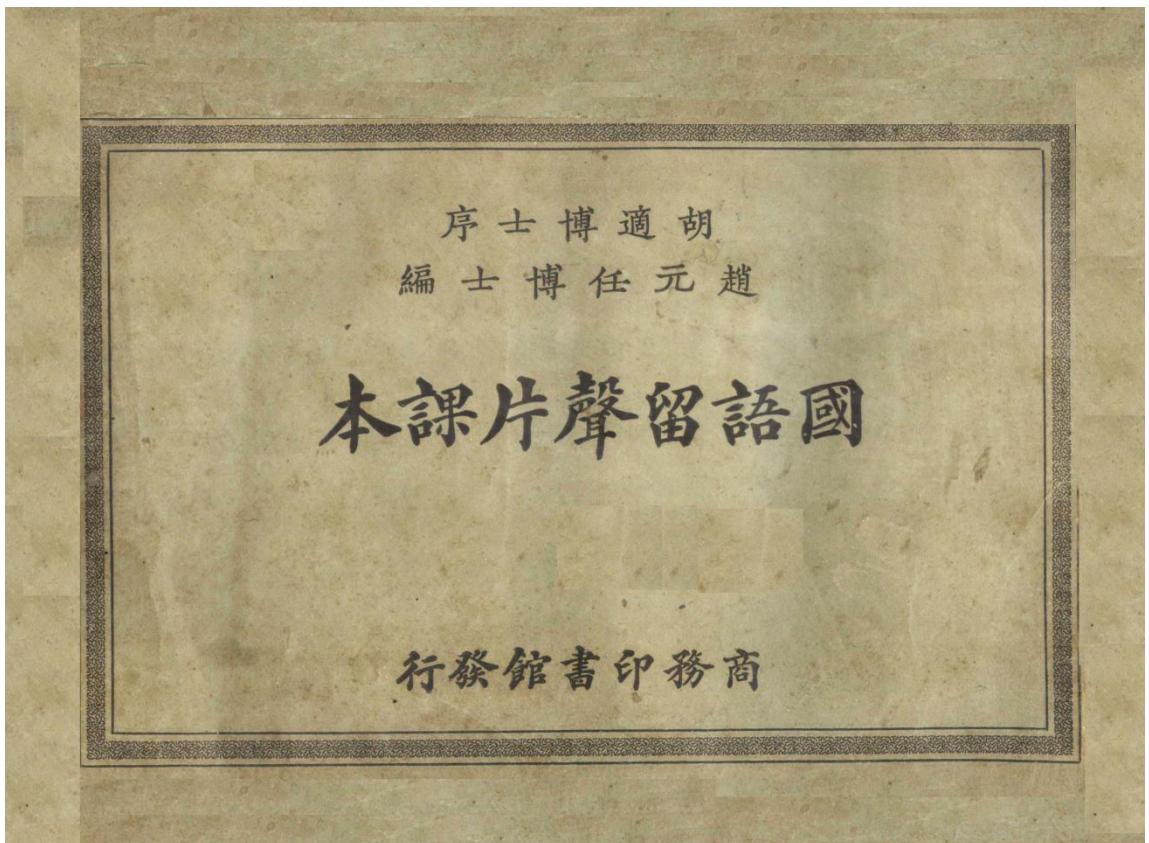 胡適博士序
趙元任博士編
國語留聲片課本
商務印書館發行